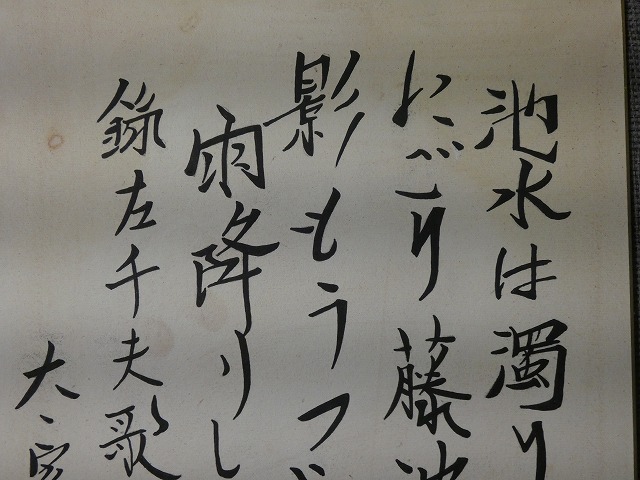 池水は濁り
にごり藤
影もうつ
雨降りし
錄左千夫歌
大